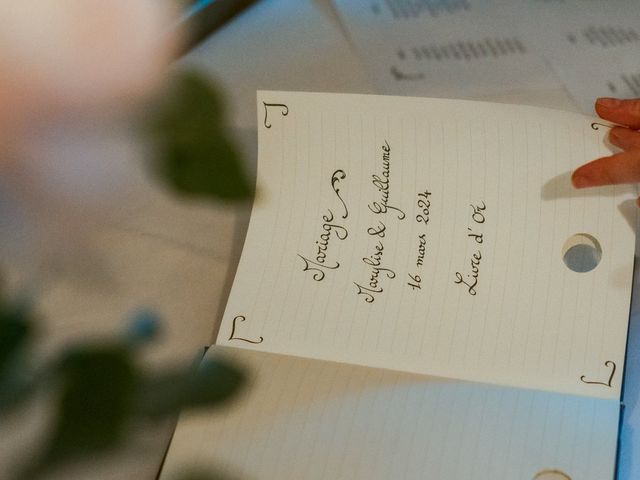 Mariage
Marylise & Guillaume
16 mars 2024
Livre d'Or